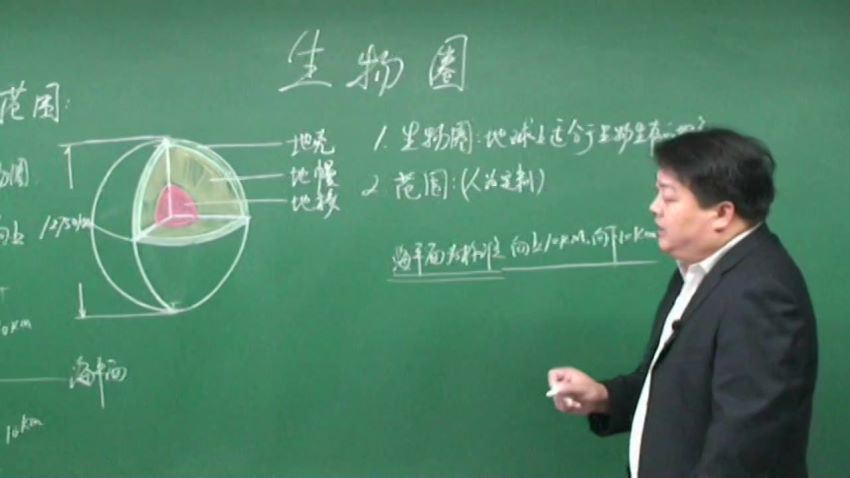 生物圈
范围:
物圈
向上
12750km
0km
海平面
10km
地壳
地幔
地核
1. 生物圈:地球上适合于生物生存
2. 范围:(人为定制)
海平面为标准 向上10KM,向下10Km